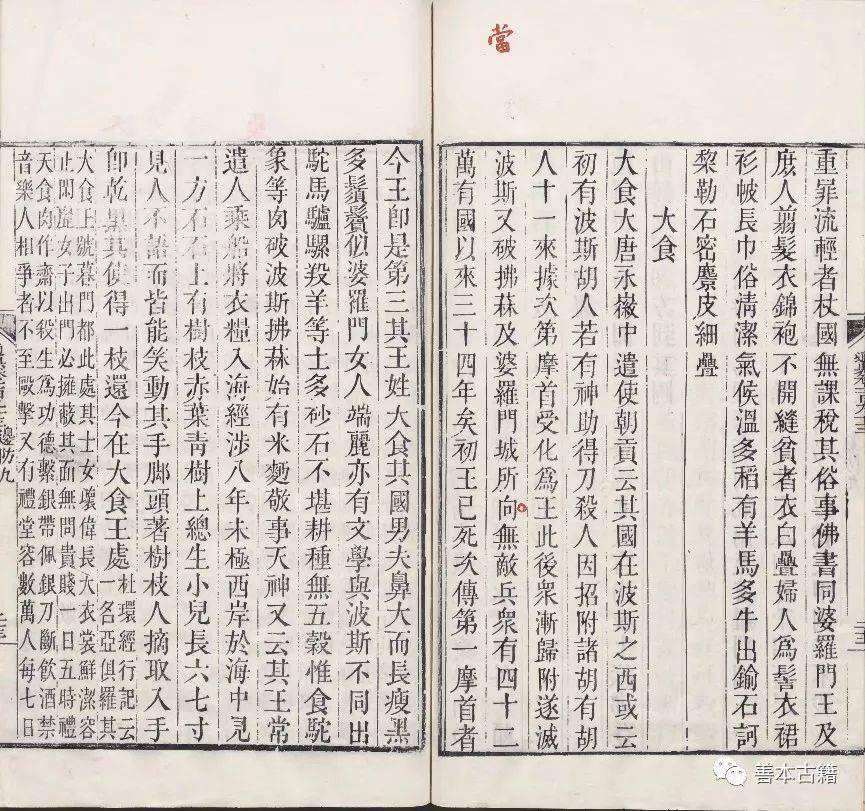 當
重罪流輕者杖國無課稅其俗事佛書同婆羅門王及
庶人翦髮衣錦袍不開縫貧者衣白疊婦人為髻衣裙
衫帔長巾俗清潔氣候溫多稻有羊馬多牛出鍮石訶
黎勒石密麖皮細疊
大食
大食大唐永徽中遣使朝貢云其國在波斯之西或云
初有波斯胡人若有神助得刀殺人因招附諸胡有胡
人十一來據次第摩首受化為王此後眾漸歸附遂滅
波斯又破拂菻及婆羅門城所向無敵兵眾有四十二
萬有國以來三十四年矣初王已死次傳第一摩首者
今王即是第三其王姓大食其國男夫鼻大而長瘦黑
多鬚鬢似婆羅門女人端麗亦有文學與波斯不同出
駝馬驢騾羖羊等士多砂石不堪耕種無五穀惟食駝
象等肉破波斯拂菻始有米麪敬事天神又云其王常
遣人乘船將衣糧入海經涉八年未極西岸於海中見
一方石石上有樹枝赤葉青樹上總生小兒長六七寸
見人不語而皆能笑動其手腳頭著樹枝人摘取入手
即乾黑其使得一枝還今在大食王處
杜環經行記云
一名亞俱羅其
大食王號暮門都此處其士女瓌偉長大衣裳鮮潔容
止閑麗女子出門必擁蔽其面無問貴賤一日五時禮
天食肉作齋以殺生為功德繫銀帶佩銀刀斷飲酒禁
音樂人相爭者不至毆擊又有禮堂容數萬人每七日
邊防九
善本古籍